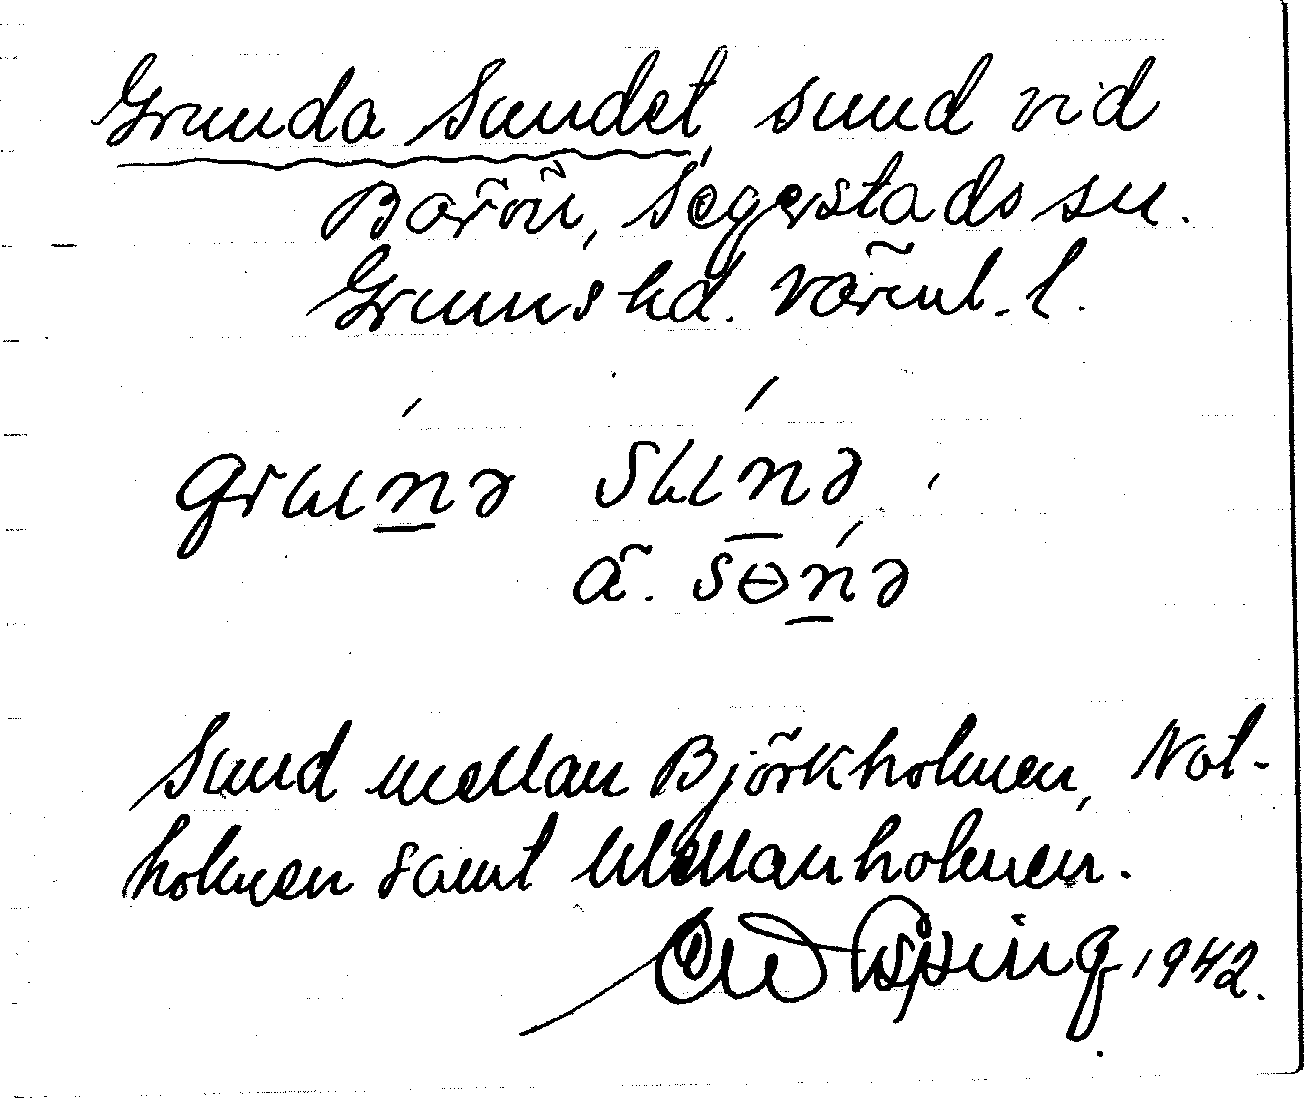 Grunda Sundet, sund vid
Barön, Segerstads sn.
Grums hd. Värml. l.
grunə sunə
ä. sɵnə
Sund mellan Björkholmen, Not-
holmen samt Mellanholmen.
1942.